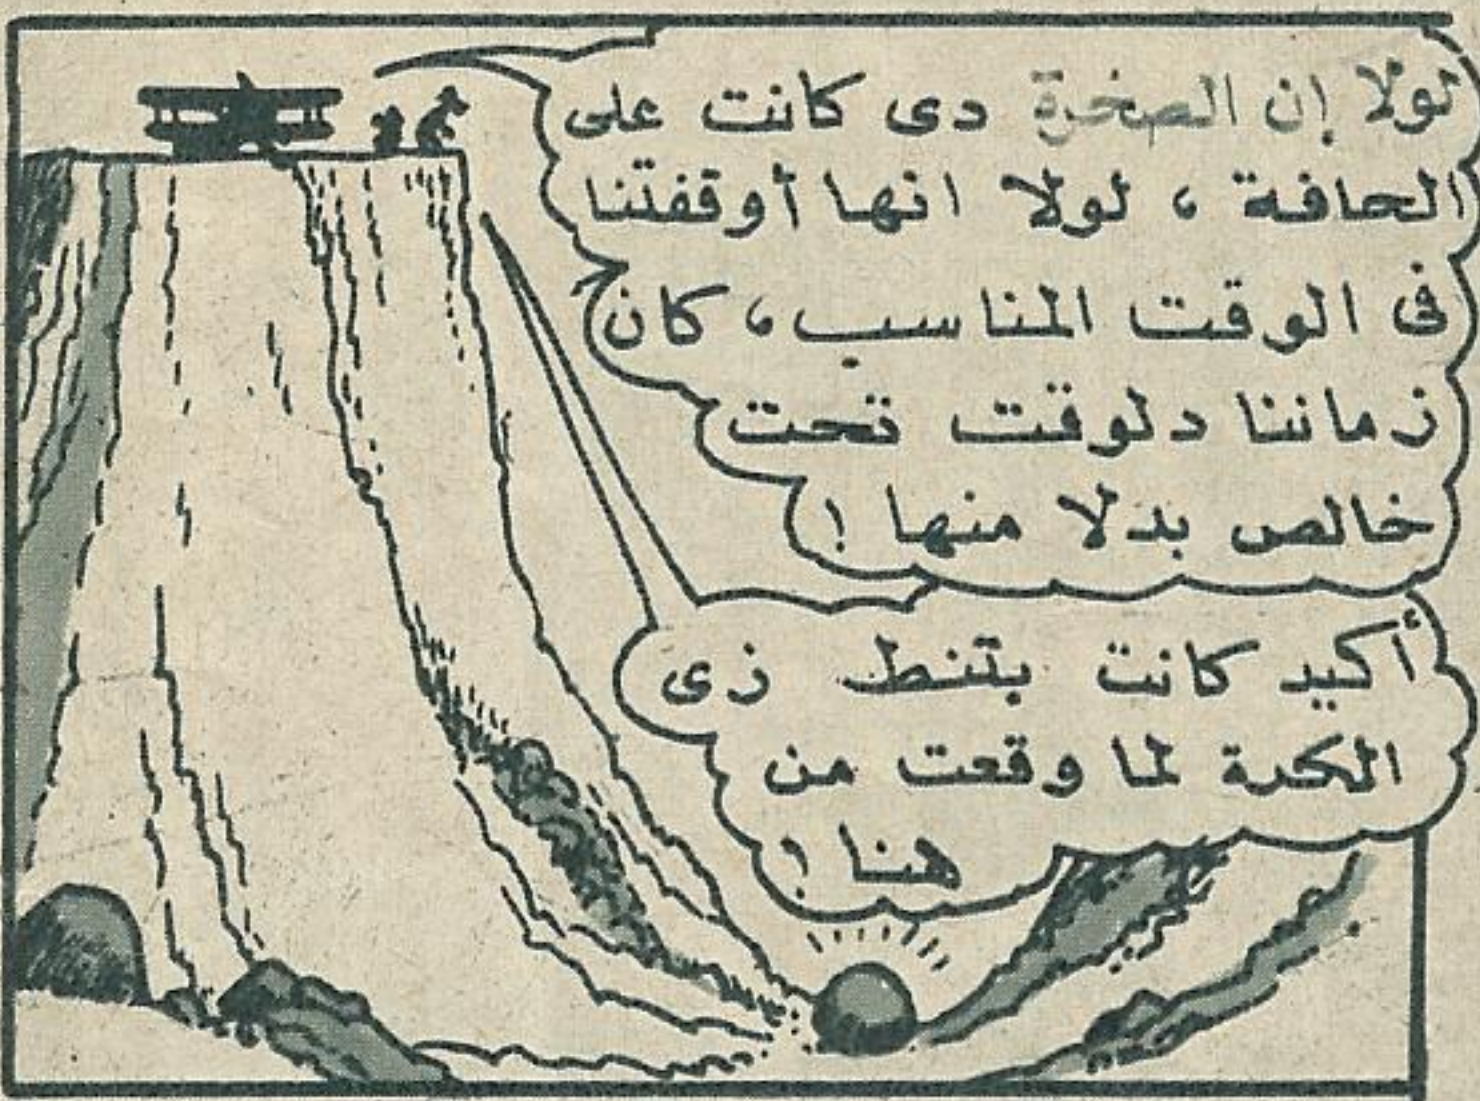 لولا إن الصخرة دى كانت على
الحافة ، لولا انها أوقفتنا
فى الوقت المناسب ، كان
زماننا دلوقت تحت
خالص بدلا منها !
أكيد كانت بتنط زى
الكرة لما وقعت من
هنا !